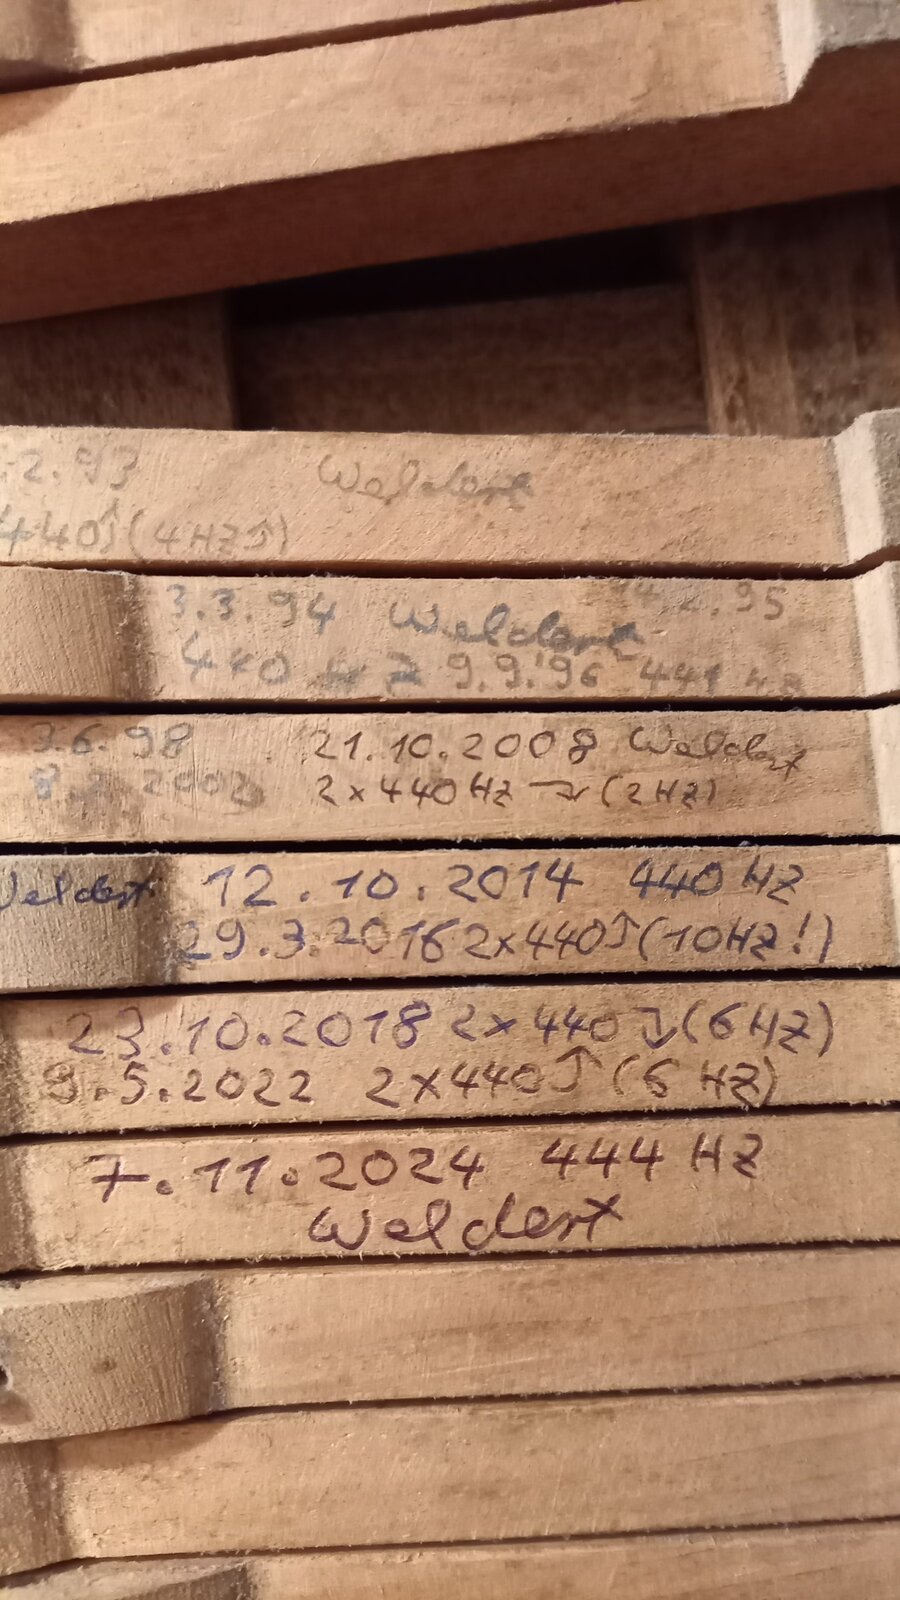 .2.93 Weldert
440↑(4HZ↑)
3.3.94 Weldert 2.95
440 HZ 9.9.96 441 HZ
3.6.98 21.10.2008 Weldert
8. 2002 2x440HZ ↘ (2HZ)
Weldert 12.10.2014 440 HZ
29.3.2016 2x440↑(10HZ!)
23.10.2018 2x440↓(6HZ)
9.5.2022 2x440↑(6 HZ)
7.11.2024 444 HZ
Weldert